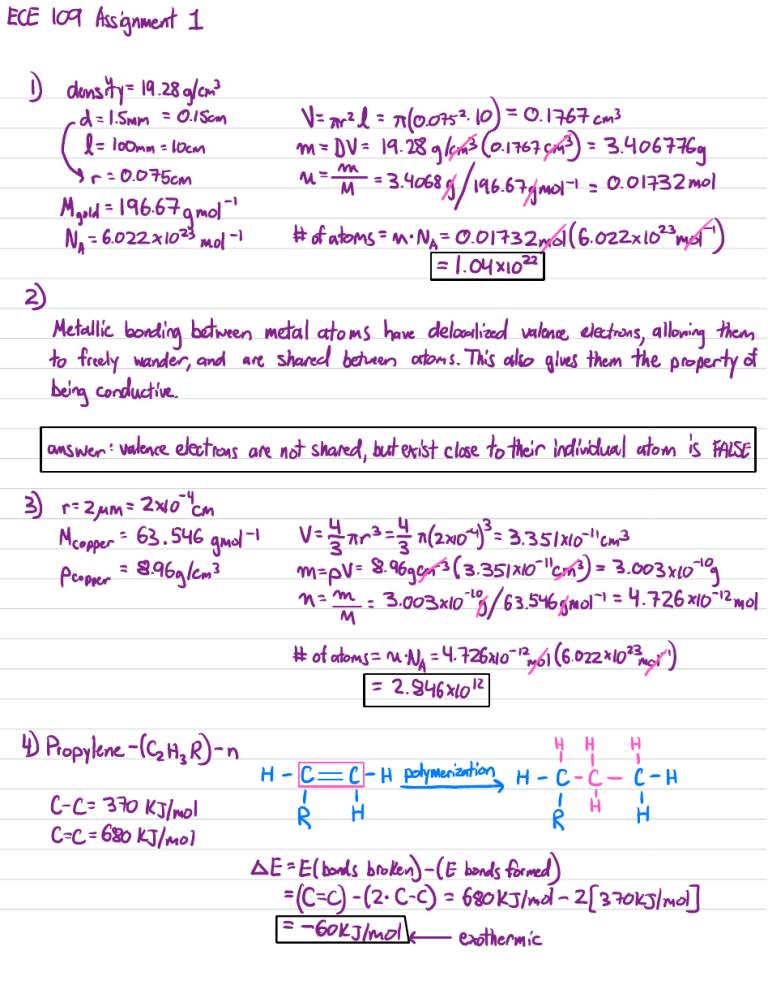 ECE 109 Assignment 1
1) density = 19.28 g/cm³
d = 1.5mm = 0.15cm
l = 100mm = 10cm
r = 0.075cm
M gold = 196.67 gmol⁻¹
N_A = 6.022×10²³ mol⁻¹
V = πr²l = π(0.075²·10) = 0.1767 cm³
m = DV = 19.28 g/cm³ (0.1767 cm³) = 3.406776g
n = m/M = 3.4068g/196.67gmol⁻¹ = 0.01732 mol
# of atoms = n·N_A = 0.01732mol(6.022×10²³mol⁻¹)
= 1.04×10²²
2)
Metallic bonding between metal atoms have delocalized valence electrons, allowing them
to freely wander, and are shared between atoms. This also gives them the property of
being conductive.
answer: valence electrons are not shared, but exist close to their individual atom is FALSE
3) r = 2μm = 2×10⁻⁴cm
M copper = 63.546 gmol⁻¹
ρ copper = 8.96g/cm³
V = 4/3 πr³ = 4/3 π(2×10⁻⁴)³ = 3.351×10⁻¹¹cm³
m = ρV = 8.96gcm⁻³ (3.351×10⁻¹¹cm³) = 3.003×10⁻¹⁰g
n = m/M = 3.003×10⁻¹⁰g/63.546gmol⁻¹ = 4.726×10⁻¹²mol
# of atoms = n·N_A = 4.726×10⁻¹²mol(6.022×10²³mol⁻¹)
= 2.846×10¹²
4) Propylene -(C₂H₃R)-n
C-C = 370 KJ/mol
C=C = 680 KJ/mol
H H H
H - C = C - H polymerization H - C - C - C - H
R H R H H
ΔE = E(bonds broken) - (E bonds formed)
= (C=C) - (2· C-C) = 680KJ/mol - 2[370KJ/mol]
= -60KJ/mol ← exothermic